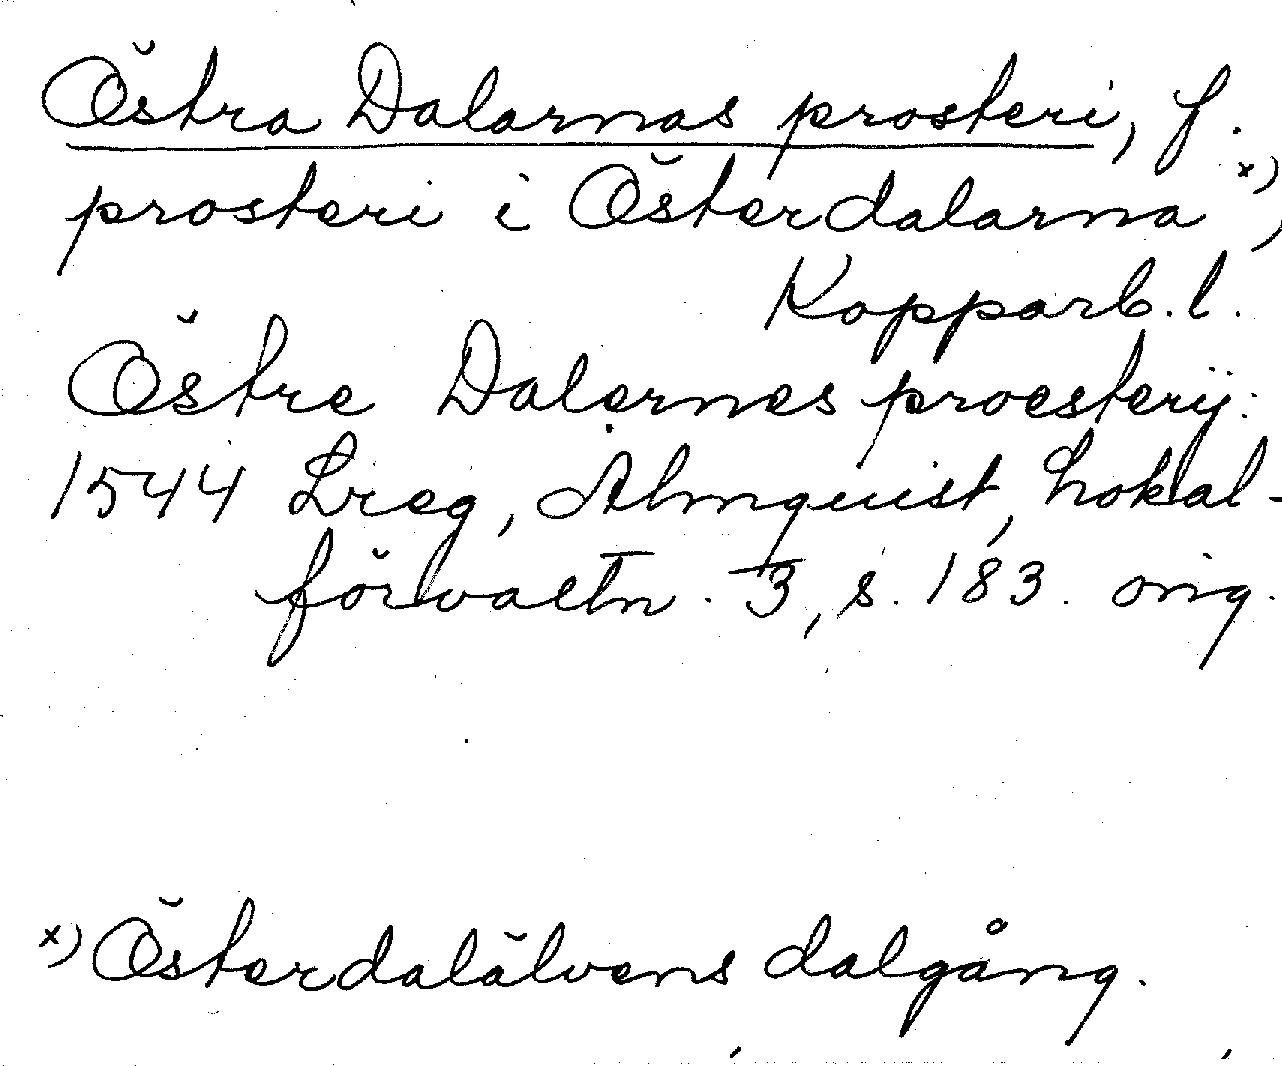 Östra Dalarnas prosteri, f.
prosteri i Österdalarna x),
Kopparb. l.
Östre Dalernes proesterij:
1544 Lreg, Almquist, Lokal-
förvaltn. 3, s. 183. orig.
x) Österdalälvens dalgång.